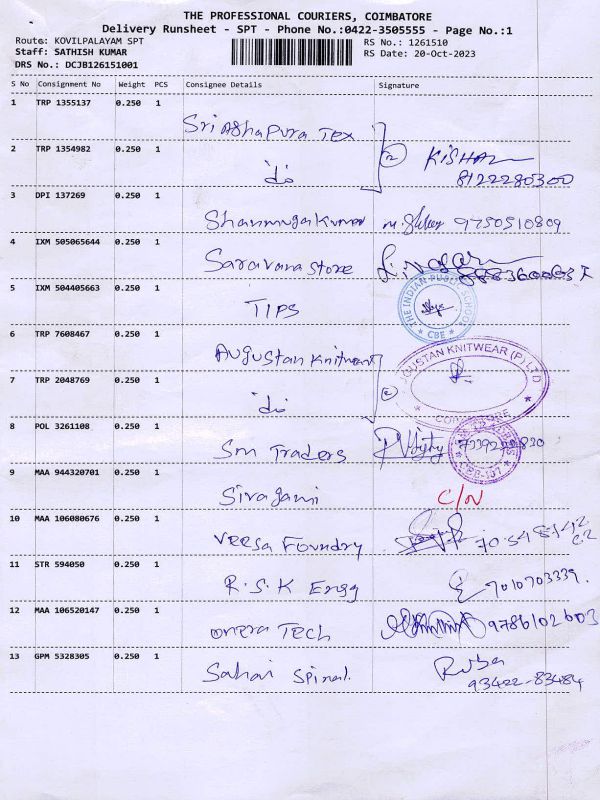 THE PROFESSIONAL COURIERS, COIMBATORE
Delivery Runsheet - SPT - Phone No.:0422-3505555 - Page No.:1
Route: KOVILPALAYAM SPT
RS No.: 1261510
Staff: SATHISH KUMAR
RS Date: 20-Oct-2023
DRS No.: DCJB126151001
S No Consignment No Weight PCS Consignee Details Signature
1 TRP 1355137 0.250 1
Sri Ashapura Tex
2 TRP 1354982 0.250 1
do 2 KISHAL
8122280300
3 DPI 137269 0.250 1
Shanmugakumar 9750510809
4 IXM 505065644 0.250 1
Saravana Store
5 IXM 504405663 0.250 1
TIPS
THE INDIAN PUBLIC SCHOOL
* CBE *
6 TRP 7608467 0.250 1
Augustan Knitwear
GUSTAN KNITWEAR (P) LTD
7 TRP 2048769 0.250 1
do 2
COIMBATORE
8 POL 3261108 0.250 1
Sm Traders
9 MAA 944320701 0.250 1
Sivagami C/N
10 MAA 106080676 0.250 1
Veesa Foundry
11 STR 594050 0.250 1
R.S.K Engg 7010703339.
12 MAA 106520147 0.250 1
onera Tech 9786102603
13 GPM 5328305 0.250 1
Sahai Spinal. Ruba
93422-83484